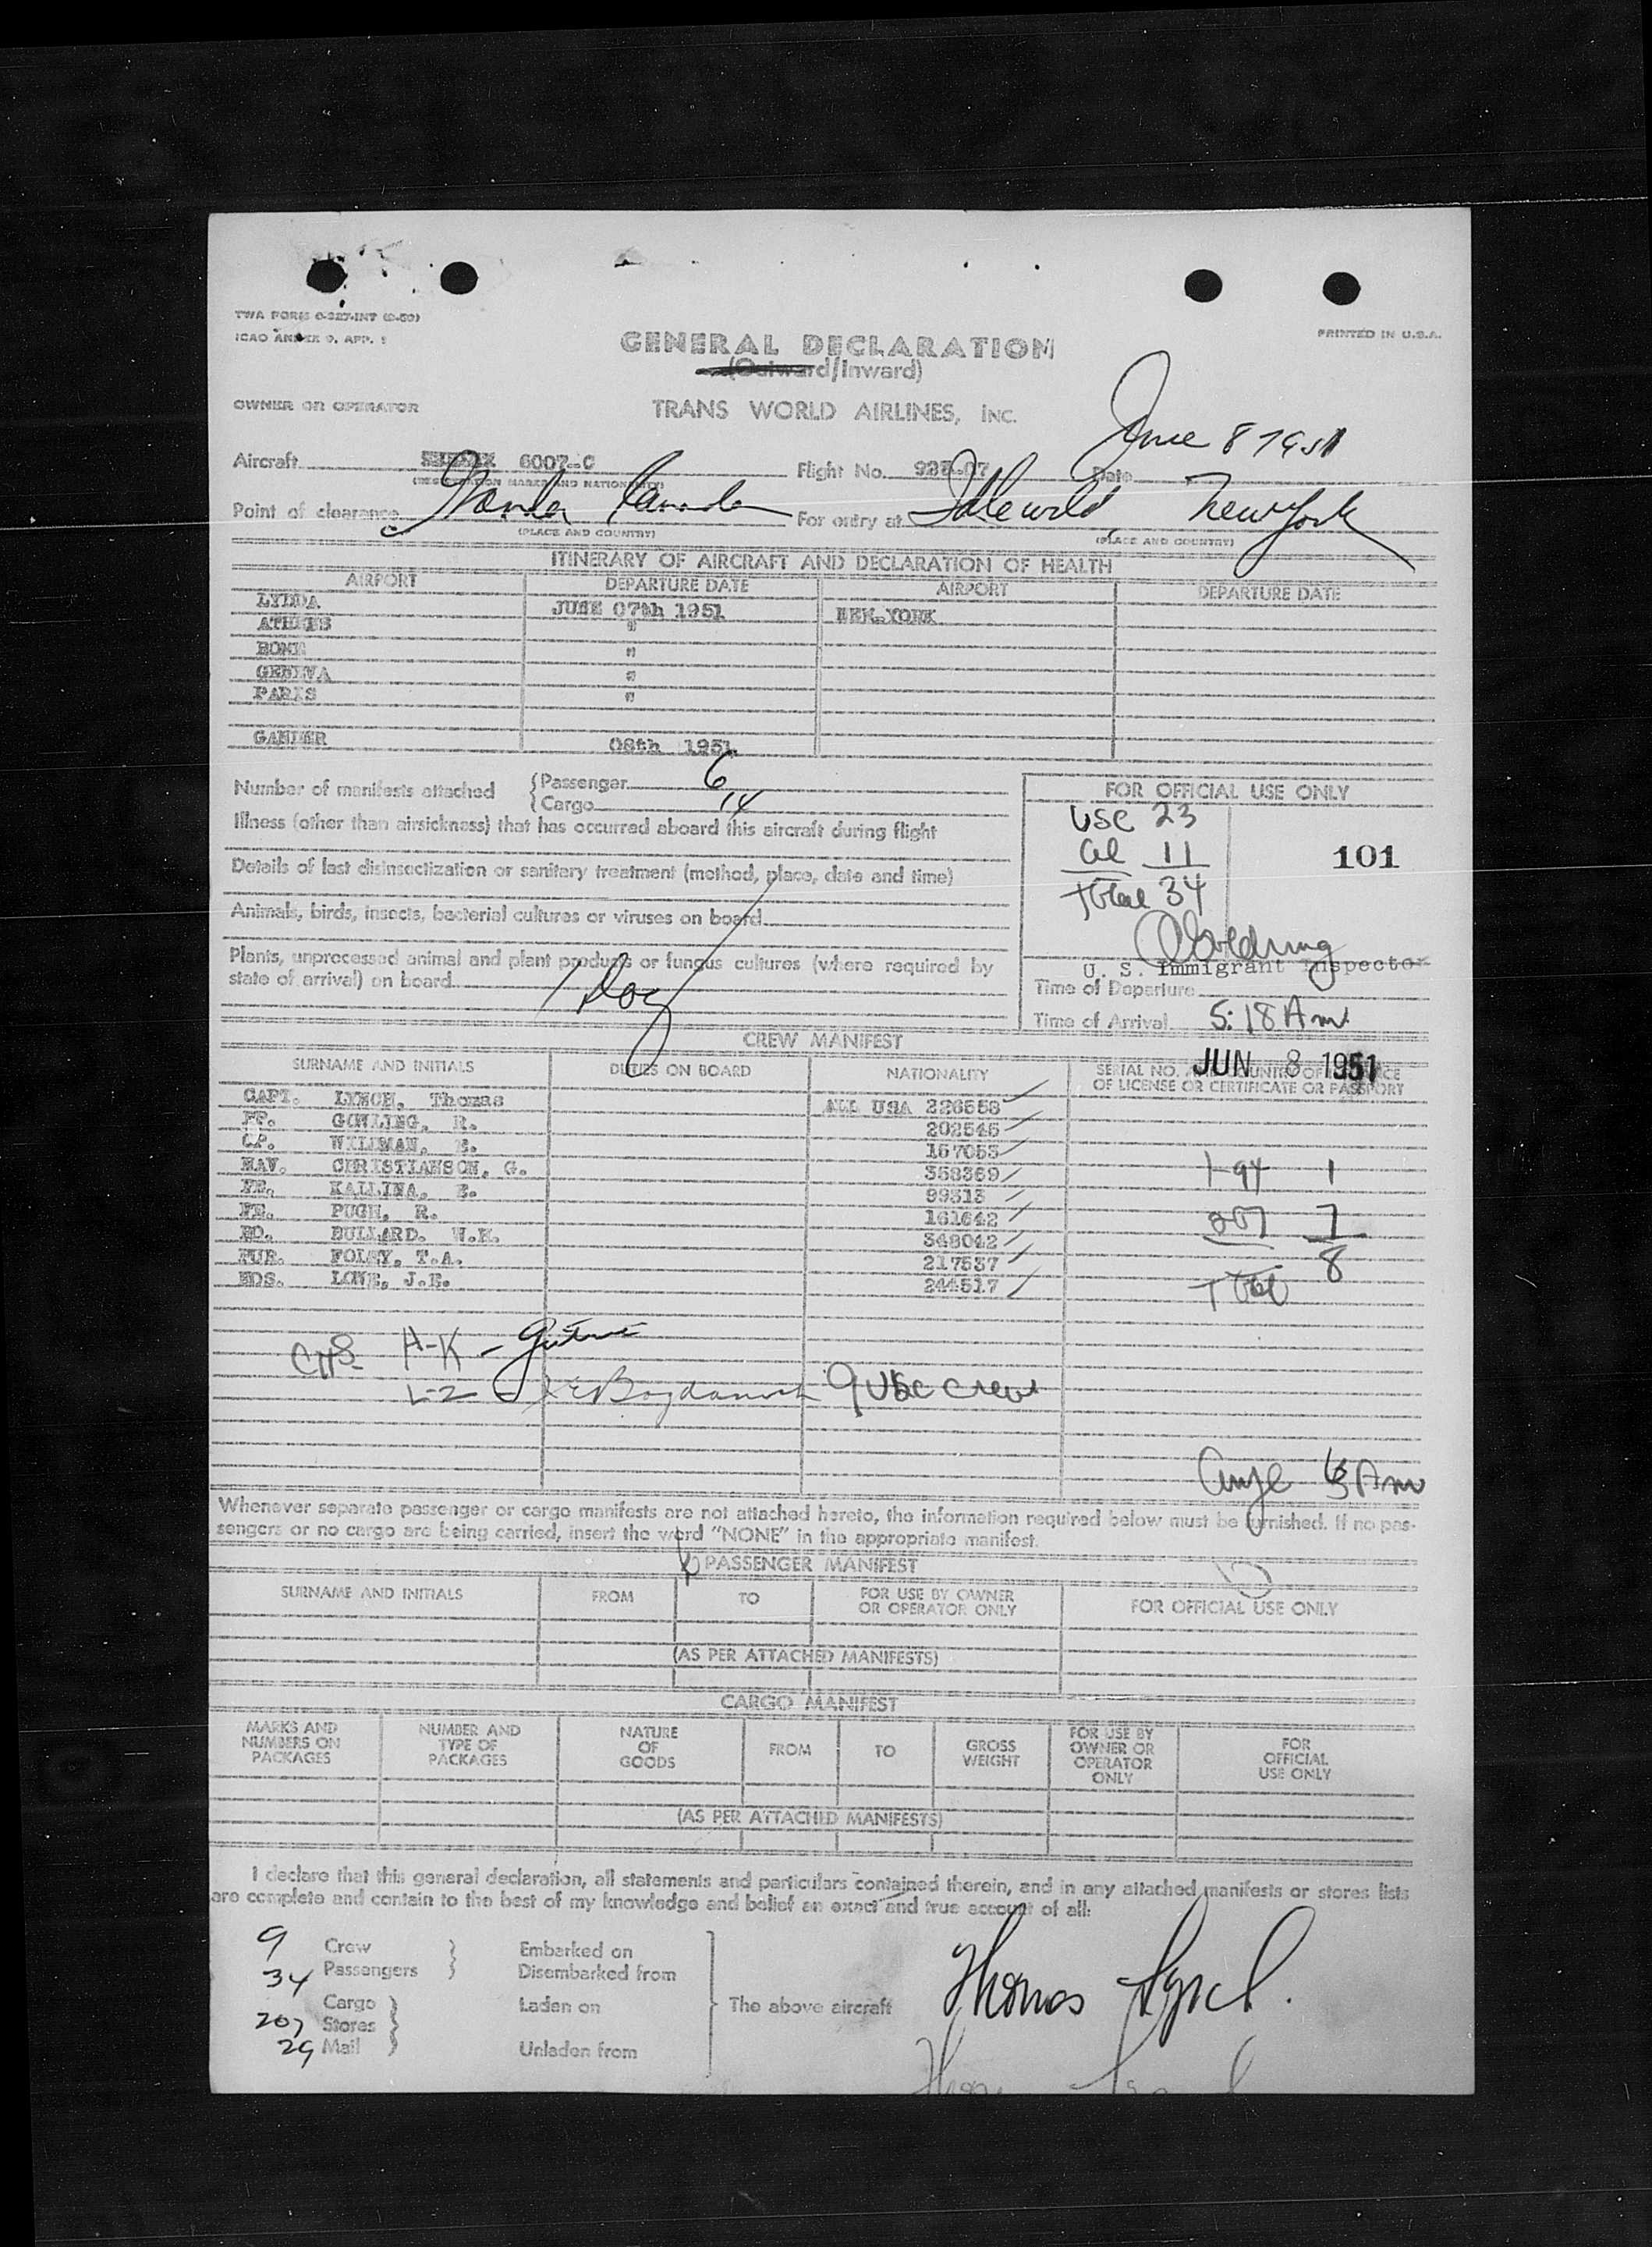 TWA FORM 0-327-INT (6-50)
ICAO ANNEX 9, APP. 1
PRINTED IN U.S.A.
GENERAL DECLARATION
(Outward/Inward)
OWNER OR OPERATOR
TRANS WORLD AIRLINES, INC.
June 8 1951
Aircraft 6007-C Flight No. Date
(REGISTRATION MARKS AND NATIONALITY)
Point of clearance Gander Canada For entry at Idlewild, New York
(PLACE AND COUNTRY) (PLACE AND COUNTRY)
ITINERARY OF AIRCRAFT AND DECLARATION OF HEALTH
AIRPORT DEPARTURE DATE AIRPORT DEPARTURE DATE
LYDDA JUNE 07th 1951 NEW YORK
ATHENS "
ROME "
GENEVA "
PARIS "
GANDER 08th 1951
Number of manifests attached { Passenger 6
{ Cargo 14
Illness (other than airsickness) that has occurred aboard this aircraft during flight
Details of last disinsectization or sanitary treatment (method, place, date and time)
Animals, birds, insects, bacterial cultures or viruses on board
Plants, unprocessed animal and plant products or fungus cultures (where required by
state of arrival) on board
1 Dog
FOR OFFICIAL USE ONLY
USC 23
Al 11
Total 34
101
U. S. Immigrant Inspector
Time of Departure
Time of Arrival 5:18 Am
JUN 8 1951
CREW MANIFEST
SURNAME AND INITIALS DUTIES ON BOARD NATIONALITY SERIAL NO. AND COUNTRY OF ISSUANCE
OF LICENSE OR CERTIFICATE OR PASSPORT
CAPT. LYNCH, Thomas ALL USA 226558
FP. GOWLING, R. 202545
CP. WILLMAN, E. 167053
NAV. CHRISTIANSON, G. 358369
FE. KALLINA, E. 99313
FE. PUGH, R. 161642
RO. BULLARD. W.H. 348042
PUR. FOLEY, T.A. 217537
HOS. LOWE, J.E. 244517
1-94 1
207 7
8
Total
CHS A-K -
L-Z - Bogdanovich 9 USC crew
6 Am
Whenever separate passenger or cargo manifests are not attached hereto, the information required below must be furnished. If no pas-
sengers or no cargo are being carried, insert the word "NONE" in the appropriate manifest.
PASSENGER MANIFEST
SURNAME AND INITIALS FROM TO FOR USE BY OWNER
OR OPERATOR ONLY FOR OFFICIAL USE ONLY
(AS PER ATTACHED MANIFESTS)
CARGO MANIFEST
MARKS AND
NUMBERS ON
PACKAGES
NUMBER AND
TYPE OF
PACKAGES
NATURE
OF
GOODS
FROM
TO
GROSS
WEIGHT
FOR USE BY
OWNER OR
OPERATOR
ONLY
FOR
OFFICIAL
USE ONLY
(AS PER ATTACHED MANIFESTS)
I declare that this general declaration, all statements and particulars contained therein, and in any attached manifests or stores lists
are complete and contain to the best of my knowledge and belief an exact and true account of all:
9 Crew } Embarked on
34 Passengers } Disembarked from
Cargo } Laden on The above aircraft Thomas Lynch.
207 Stores }
29 Mail } Unladen from